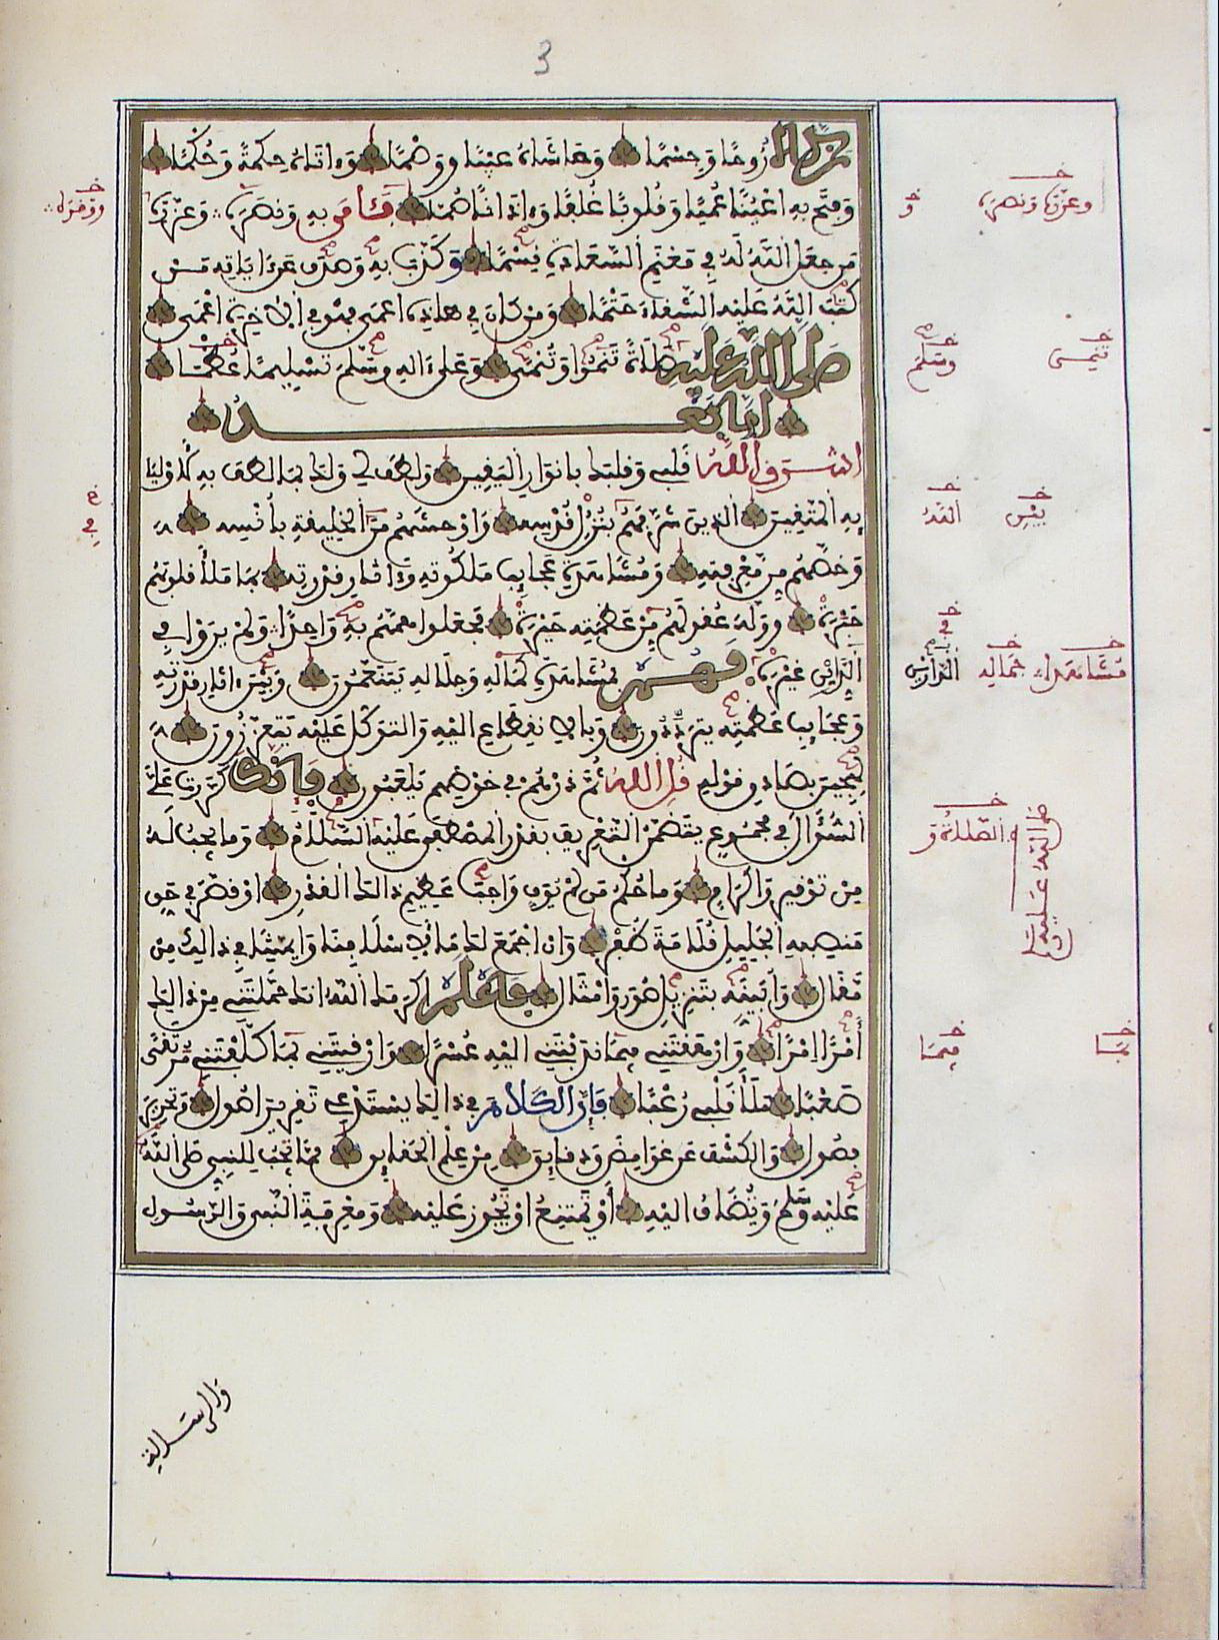 3
وزكاه روحا وجسما وحاشاه عيبا ووصما وءاتاه حكمة وحكما
وفتح به أعينا عميا وقلوبا غلفا وءاذانا صما فئامن به ونصره وعزره
من جعل الله له في مغنم السعادة قسما وكذب به وصدف عن ءاياته من
كتب الله عليه الشقاء حتما ومن كان في هذه أعمى فهو في الآخرة أعمى
صلى الله عليه صلاة تنمو وتنمى وعلى ءاله وسلم تسليما
أما بعد
أشرق الله قلبي وقلبك بأنوار اليقين ولطف لي ولك بما لطف به لأوليائه
المتقين الذين شرفهم بنزل قدسه وأوحشهم من الخليقة بأنسه
وخصهم من معرفته ومشاهدة عجائب ملكوته وءاثار قدرته بما ملأ قلوبهم
حبرة ووله عقولهم من عظمته حيرة فجعلوا همهم به واحدا ولم يروا في
الدارين غيره فهم بمشاهدة كماله وجلاله يتنعمون وبين ءاثار قدرته
وعجائب عظمته يترددون وبالانقطاع إليه والتوكل عليه يتعززون
لهجين بصادق قوله قل الله ثم ذرهم في خوضهم يلعبون فإنك كررت علي
السؤال في مجموع يتضمن التعريف بقدر المصطفى عليه السلام وما يجب له
من توقير وإكرام وما حكم من لم يوف واجب عظيم ذلك القدر أو قصر في حق
منصبه الجليل قلامة ظفر وأن أجمع لك ما لأسلافنا وأئمتنا في ذلك من
مقال وأبينه بتنزيل صور وأمثال فاعلم أكرمك الله أنك حملتني من ذلك
أمرا إمرا وأرهقتني فيما ندبتني إليه عسرا وأرقيتني بما كلفتني مرتقى
صعبا ملأ قلبي رعبا فإن الكلام في ذلك يستدعي تقرير أصول وتحرير
فصول والكشف عن غوامض ودقائق من علم الحقائق مما يجب للنبي صلى الله
عليه وسلم ويضاف إليه أو يمتنع أو يجوز عليه ومعرفة النبي والرسول
وعزره ونصره
و
ووقره
وسلم
الله
في
الدارين
جماله
مشاهدة
الصلاة و
صلى الله عليه
بما
فيما
والرسالة